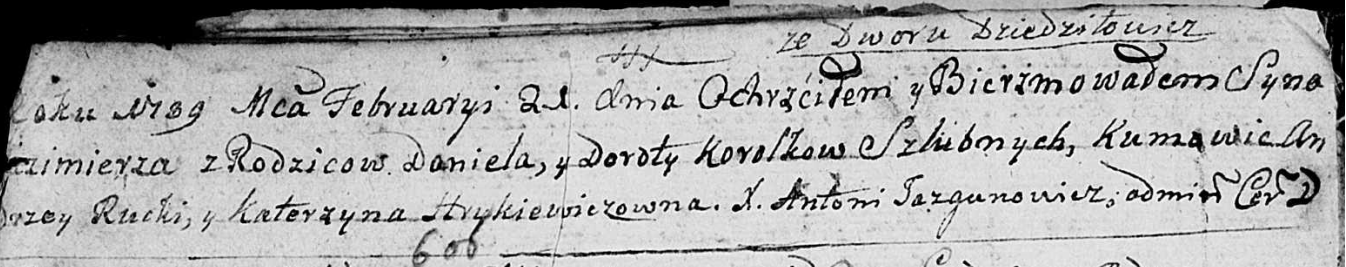 ze Dworu Dziedziłowicz
Roku 1789 Mca Februaryi 21. dnia Ochrzciłem y Bierzmowałem Syna
Kazimierza z Rodzicow Daniela, y Doroty Korolkow Szlubnych, Kumowie An
drzey Rucki, y Katerzyna Hrykiewiczowna. X. Antoni Jazgunowicz, admin Cer D
600